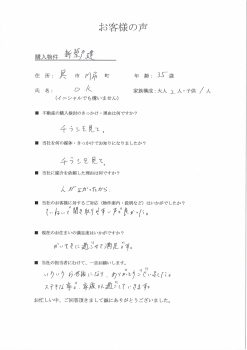 お客様の声
購入物件 新築戸建
住所： 呉 市 町 年齢：35歳
氏名： O K 家族構成：大人 2 人・子供 1 人
（イニシャルでも構いません）
■ 不動産の購入検討のきっかけ・理由は何ですか？
チラシを見て、
■ 当社を何の媒体・きっかけでお知りになりましたか？
チラシを見て、
■ 当社に仲介を依頼した理由は何ですか？
人がよかったから
■ 当社のお客様に対するご対応（物件案内・説明など）はいかがですか？
ていねいで聞き取りやすい声が良かった。
■ 現在のお住まいの満足度はいかがですか？
かいてきに過ごせて満足です。
■ 当社の担当者にむけて、一言お願いします。
いろいろお世話になり、ありがとうございました。
ステキな家で、家族で過ごしていきます。
お忙しい中、ご回答頂きまして誠にありがとうございました。